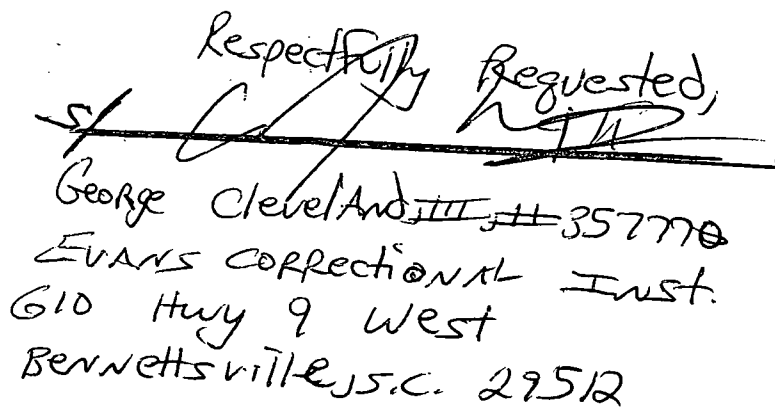 Respectfully Requested,
s/
George Cleveland, III, # 357770
Evans Correctional Inst.
610 Hwy 9 West
Bennettsville, S.C. 29512